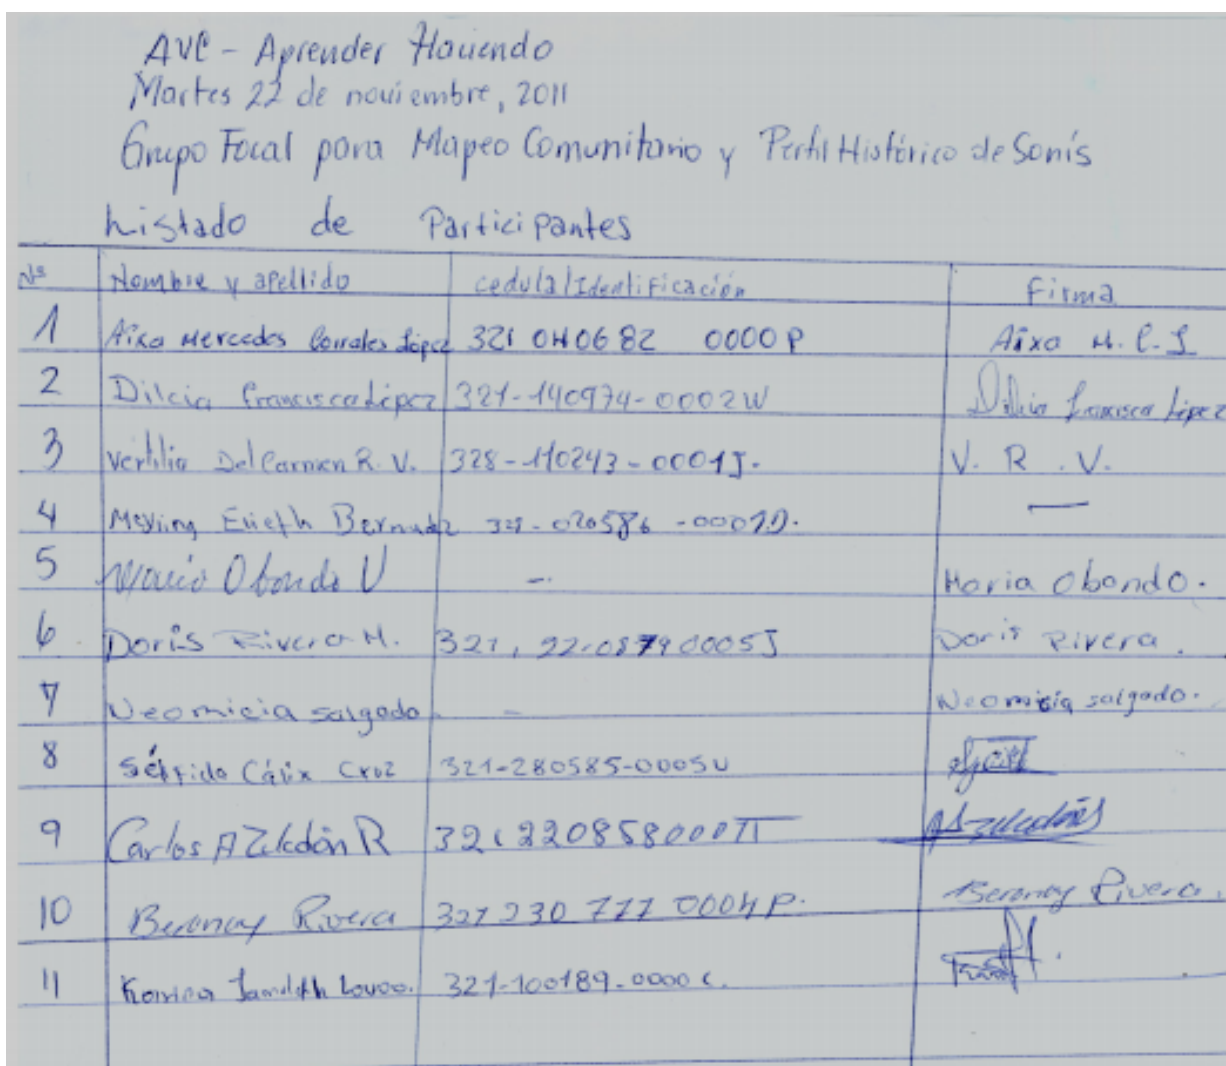 AVC - Aprender Haciendo
Martes 22 de noviembre, 2011
Grupo Focal para Mapeo Comunitario y Perfil Histórico de Sonís
Listado de Participantes
Nº Nombre y apellido cedula/Identificación Firma
1 Aixa Mercedes Corrales López 321 040682 0000P Aixa M. C. L
2 Dilcia Francisca López 321-140974-0002W Dilcia Francisca López
3 Vertilia Del Carmen R. V. 328-110243-0001J. V. R. V.
4 Meyling Elieth —
5 Obando V - Maria Obando.
6 Doris Rivera M. 321, Doris Rivera.
7 Neomicia salgado - Neomicia salgado.
8 Cálix Cruz 321-280585-0005U
9 Carlos A Zeledón R
10 Rivera 321 230 777 0004P. Rivera.
11 321-100189-0000C.